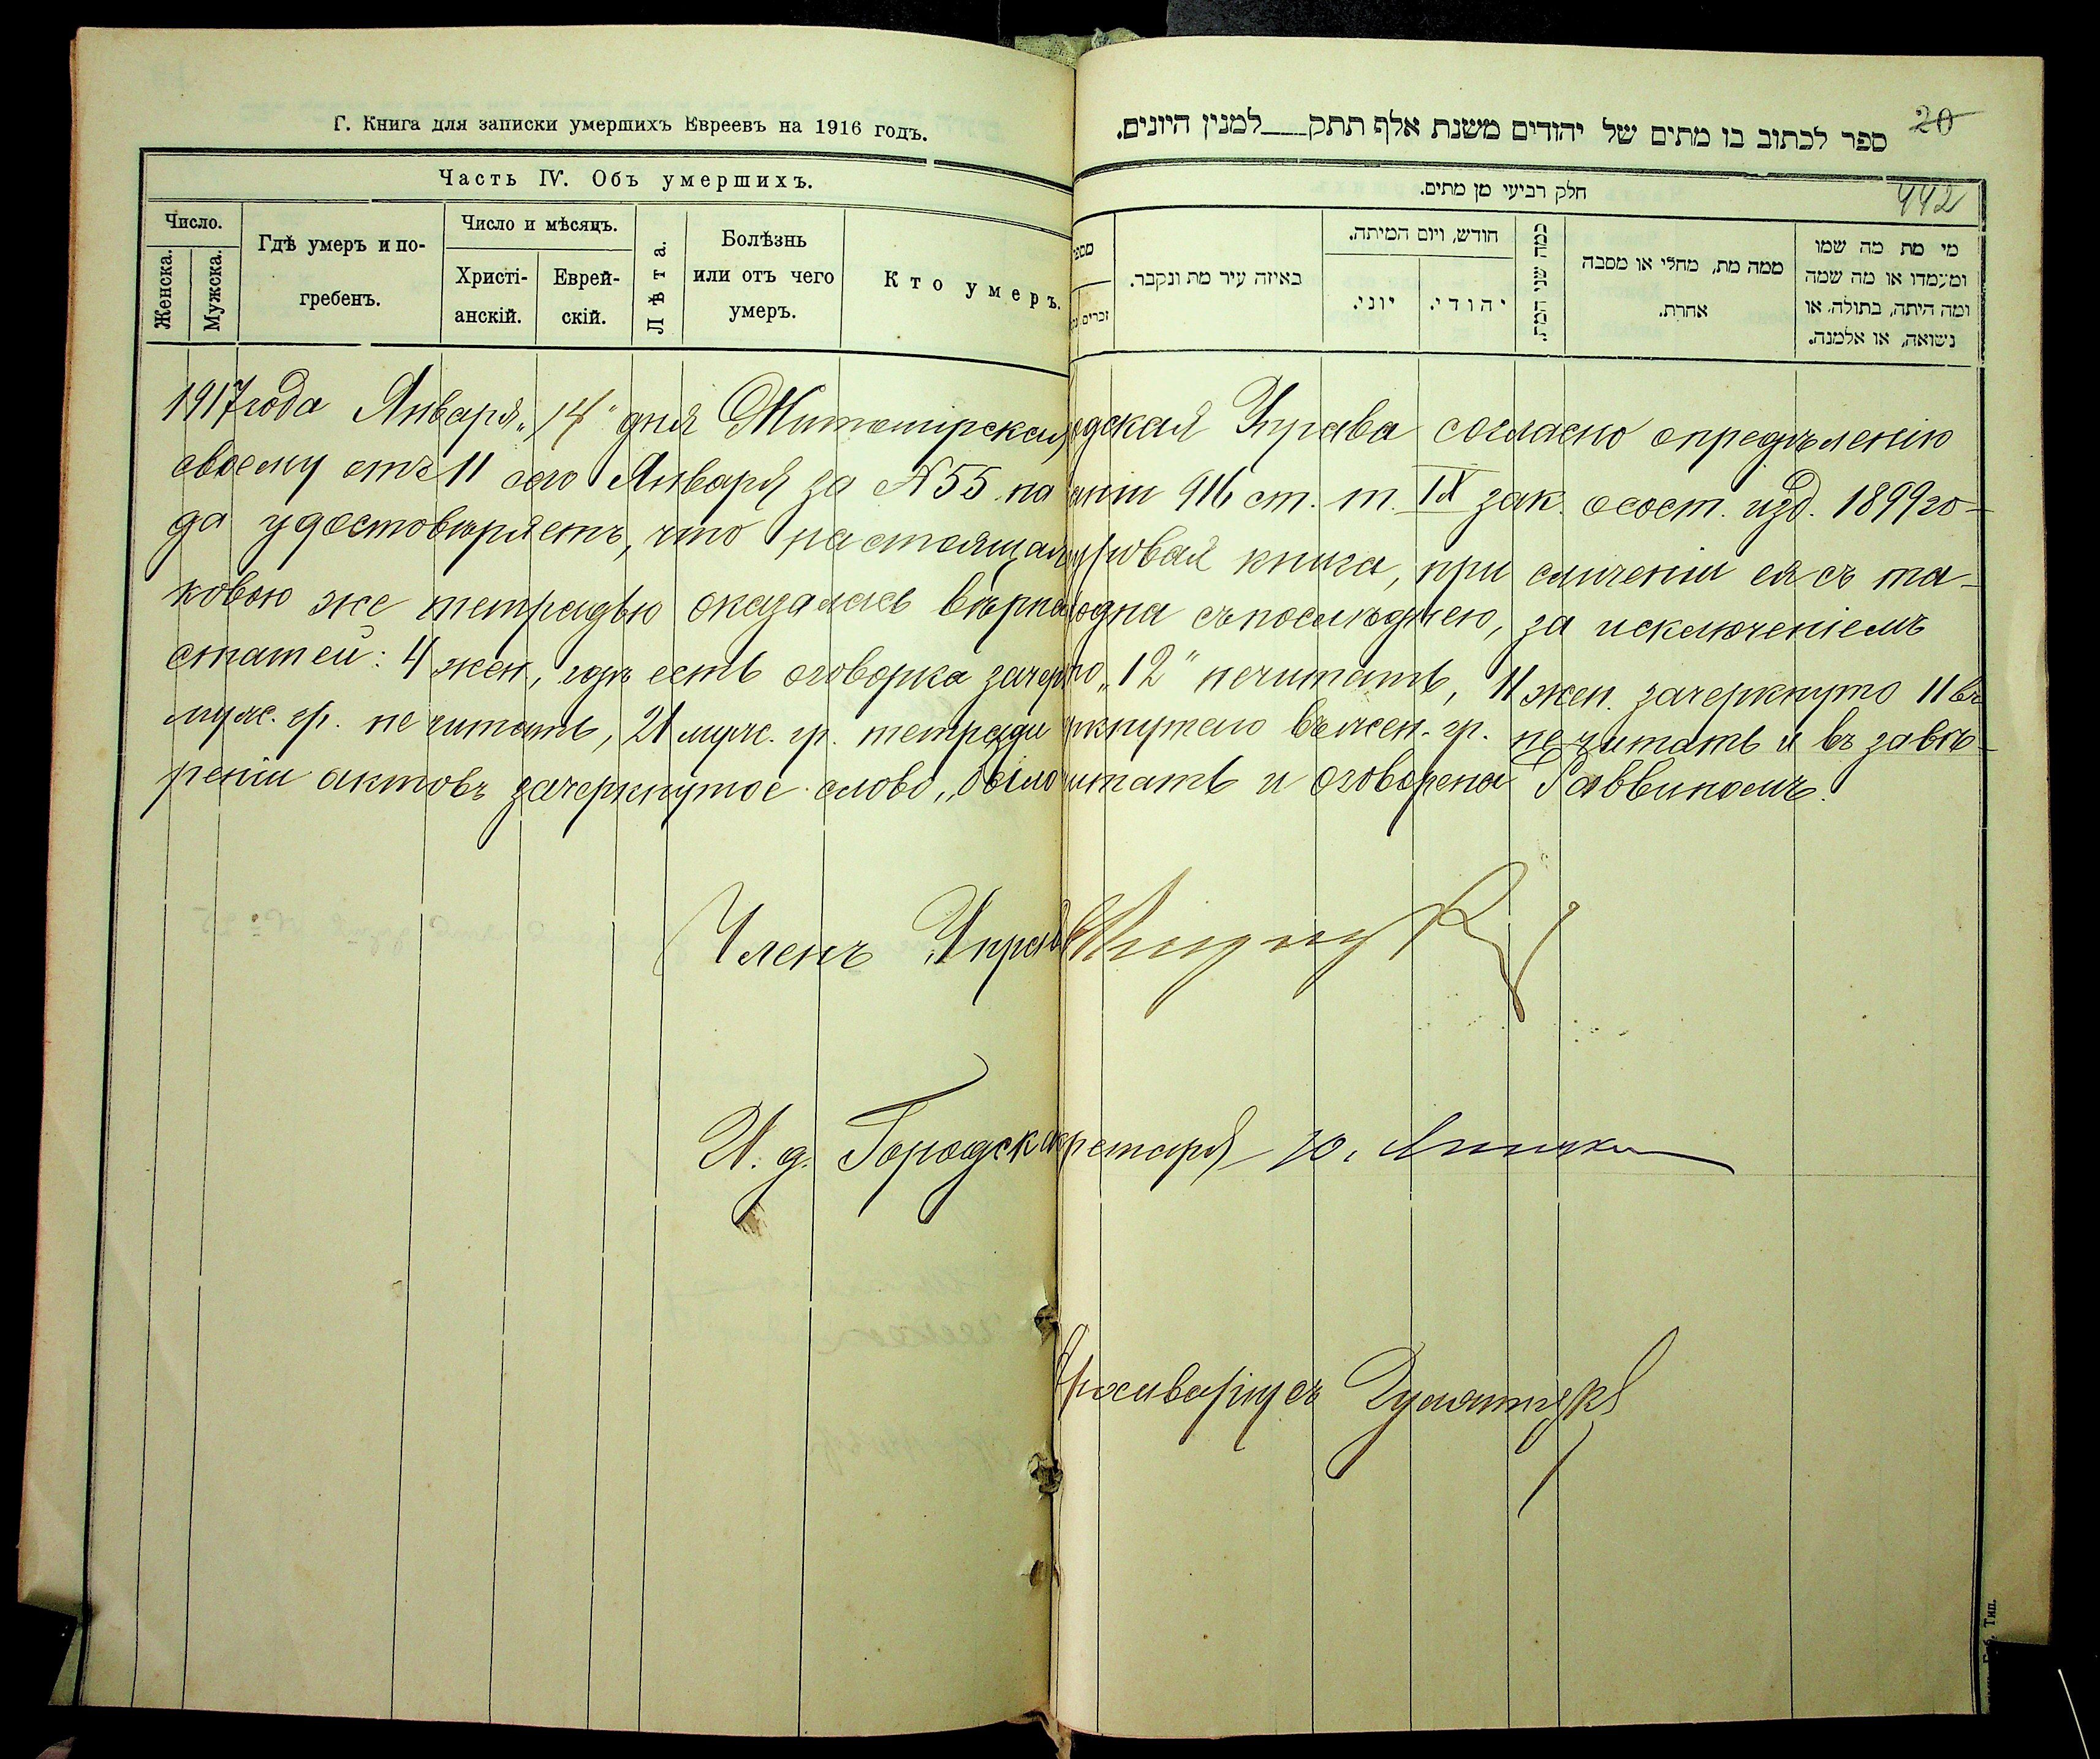 Г. Книга для записки умершихъ Евреевъ на 1916 годъ.
Часть IV. Объ умершихъ.
Число.
Женска.
Мужска.
Гдѣ умеръ и по-
гребенъ.
Число и мѣсяцъ.
Христі-
анскій.
Еврей-
скій.
Лѣта.
Болѣзнь
или отъ чего
умеръ.
Кто умеръ.
20
ספר לכתוב בו מתים של יהודים משנת אלף תתק___למנין היונים.
442
חלק רביעי מן מתים.
זכרים.
באיזה עיר מת ונקבר.
חודש, ויום המיתה.
יוני.
יהודי.
כמה שני המת.
ממה מת, מחלי או מסבה
אחרת.
מי מת מה שמו
ומעמדו או מה שמה
ומה היתה, בתולה, או
נשואה, או אלמנה.
1917 года Января „14" дня Житомірская одская Управа согласно опредѣленію
своему отъ 11 сего Января за № 55 на аніи 916 ст. т. IX зак. о сост. изд. 1899 го-
да удостовѣряетъ, что настоящая овая книга, при сличеніи ея съ та-
ковою же тетрадью оказалась вѣрна одна съ послѣднею, за исключеніемъ
статей: 4 жен., гдѣ есть оговорка зачер то „12" нечитать, 11 жен. зачеркнуто 11 въ
муж. гр. не читать, 21 муж. гр. тетради ркнутаго въ жен. гр. нечитать и въ завѣ-
реніи актовъ зачеркнутое слово „было итать и оговорена Раввиномъ.
Членъ Управ
И. д. Городск кретаря Ю.
Архиваріусъ
Тип.